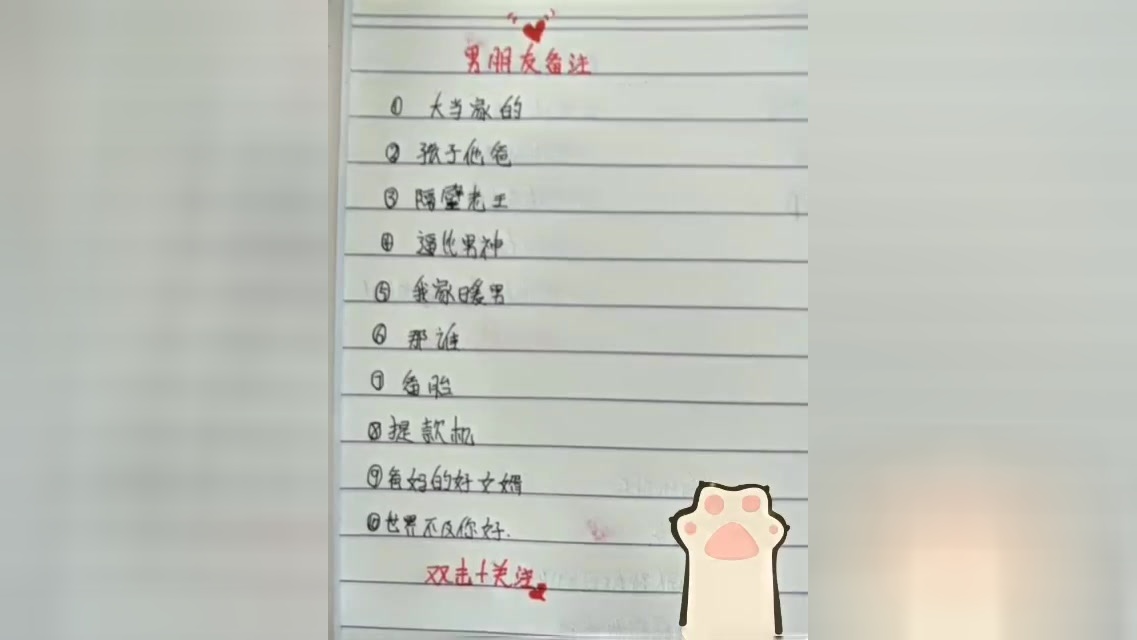 男朋友备注
① 大当家的
② 孩子他爸
③ 隔壁老王
④ 逼他男神
⑤ 我家暖男
⑥ 那谁
⑦ 备胎
⑧ 提款机
⑨ 爸妈的好女婿
⑩ 世界不及你好.
双击+关注